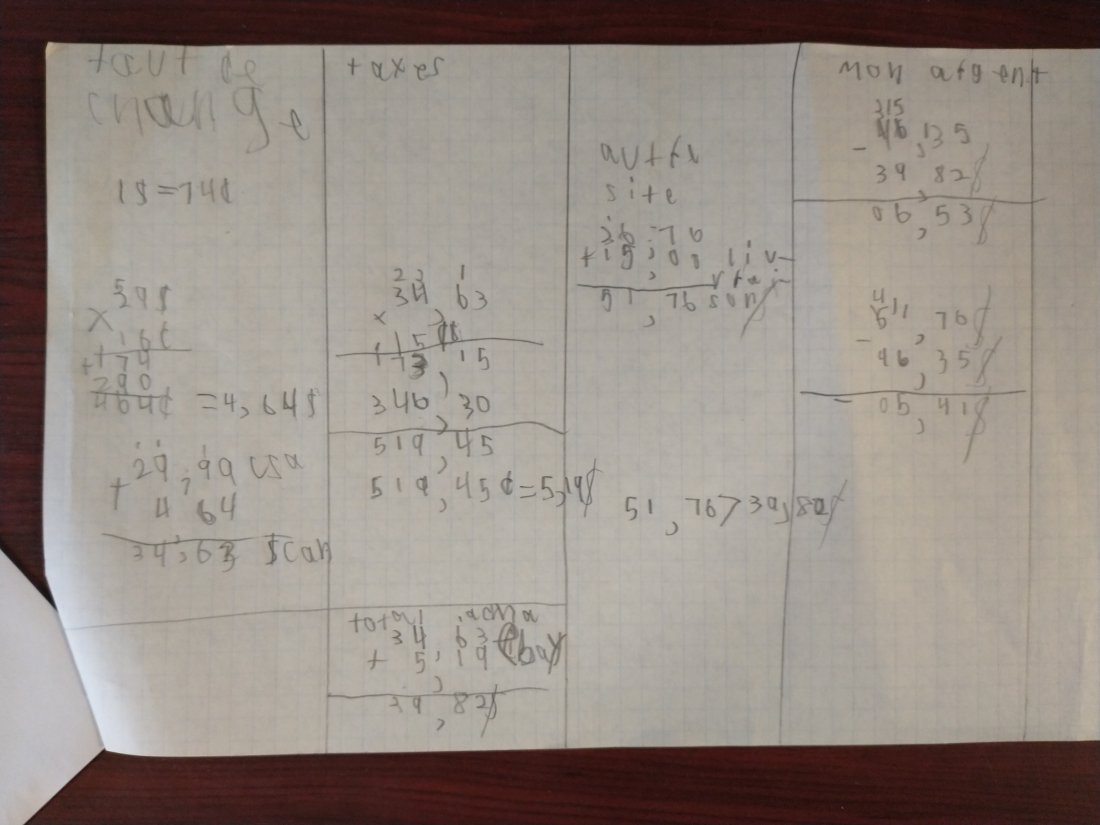 taut de
change
1$=74¢
5
29$
x 16¢
+174
290
464¢ =4,64$
29,99 usa
+ 4 64
34,63 $can
taxes
2 2 1
34,63
x 15
173,15
346,30
519,45
519,45¢=5,19$
total acha
34,63 ebay
+ 5,19
39,82$
autre
site
36,76
+15,00 liv-
51,76
51,76>39,82$
mon argent
315
46,35
- 39,82$
06,53$
4
511,76$
- 46,35$
05,41$